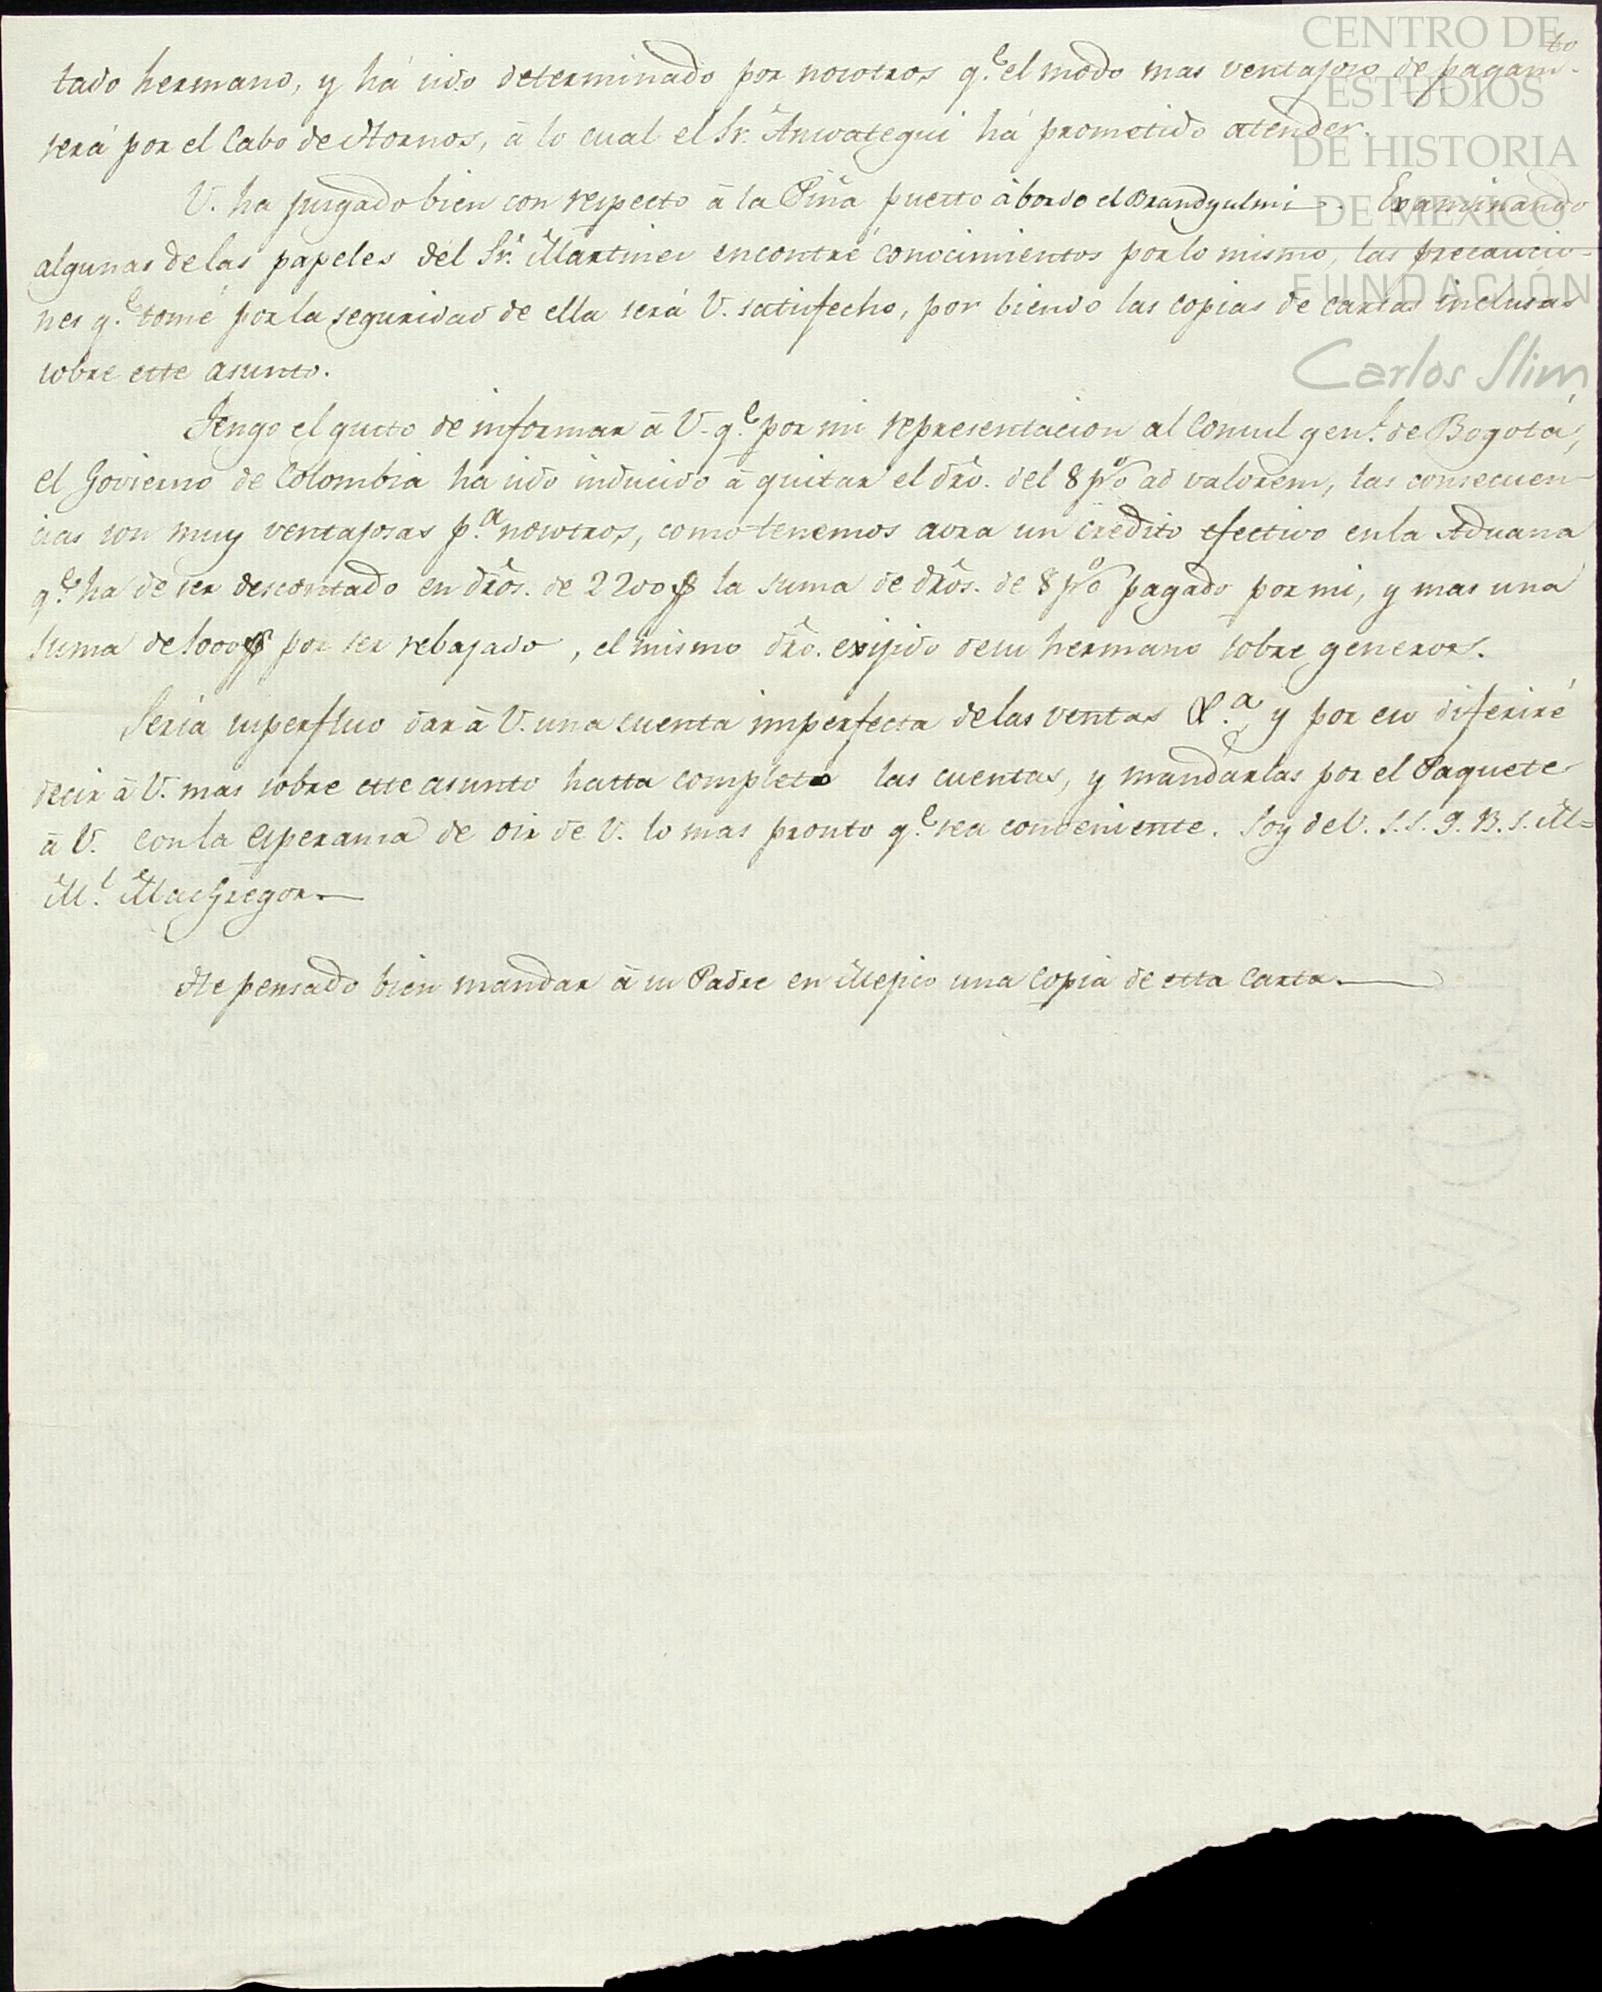 CENTRO DE
ESTUDIOS
DE HISTORIA
DE MÉXICO
FUNDACIÓN
Carlos Slim
tado hermano, y há sido determinado por nosotros q.e el modo mas ventajoso de pagam.to
será por el Cabo de Hornos, á lo cual el Sr. há prometido atender.
V. ha jusgado bien con respecto á la Piña puesto á bordo el Examinando
algunas de las papeles del Sr. Martinez encontré conocimientos por lo mismo, las precaucio-
nes q.e tomé por la seguridad de ella será V. satisfecho, por biendo las copias de cartas inclusas
sobre este asunto.
Tengo el gusto de informar á V. q.e por mi representacion al Consul gen.l de Bogotá,
el Govierno de Colombia ha sido inducido á quitar el dró. del 8 p% ad valorem, las consecuen-
cias son muy ventajosas p.a nosotros, como tenemos aora un credito efectivo en la Aduana
q.e ha de ser descontado en drós. de 2200$ la suma de drós. de 8 p% pagado por mi, y mas una
suma de 1000$ por ser rebajado, el mismo dró. exijido de su hermano sobre generos.
Seria superfluo dar á V. una cuenta imperfecta de las ventas &.a y por eso diferiré
decir á V. mas sobre este asunto hasta completo las cuentas, y mandarlas por el Paquete
á V. con la esperansa de oir de V. lo mas pronto q.e sea conveniente. Soy de V. S. S. Q. B. S. M=
M.l MacGregor.—
He pensado bien mandar á su Padre en Mejico una copia de esta carta.—